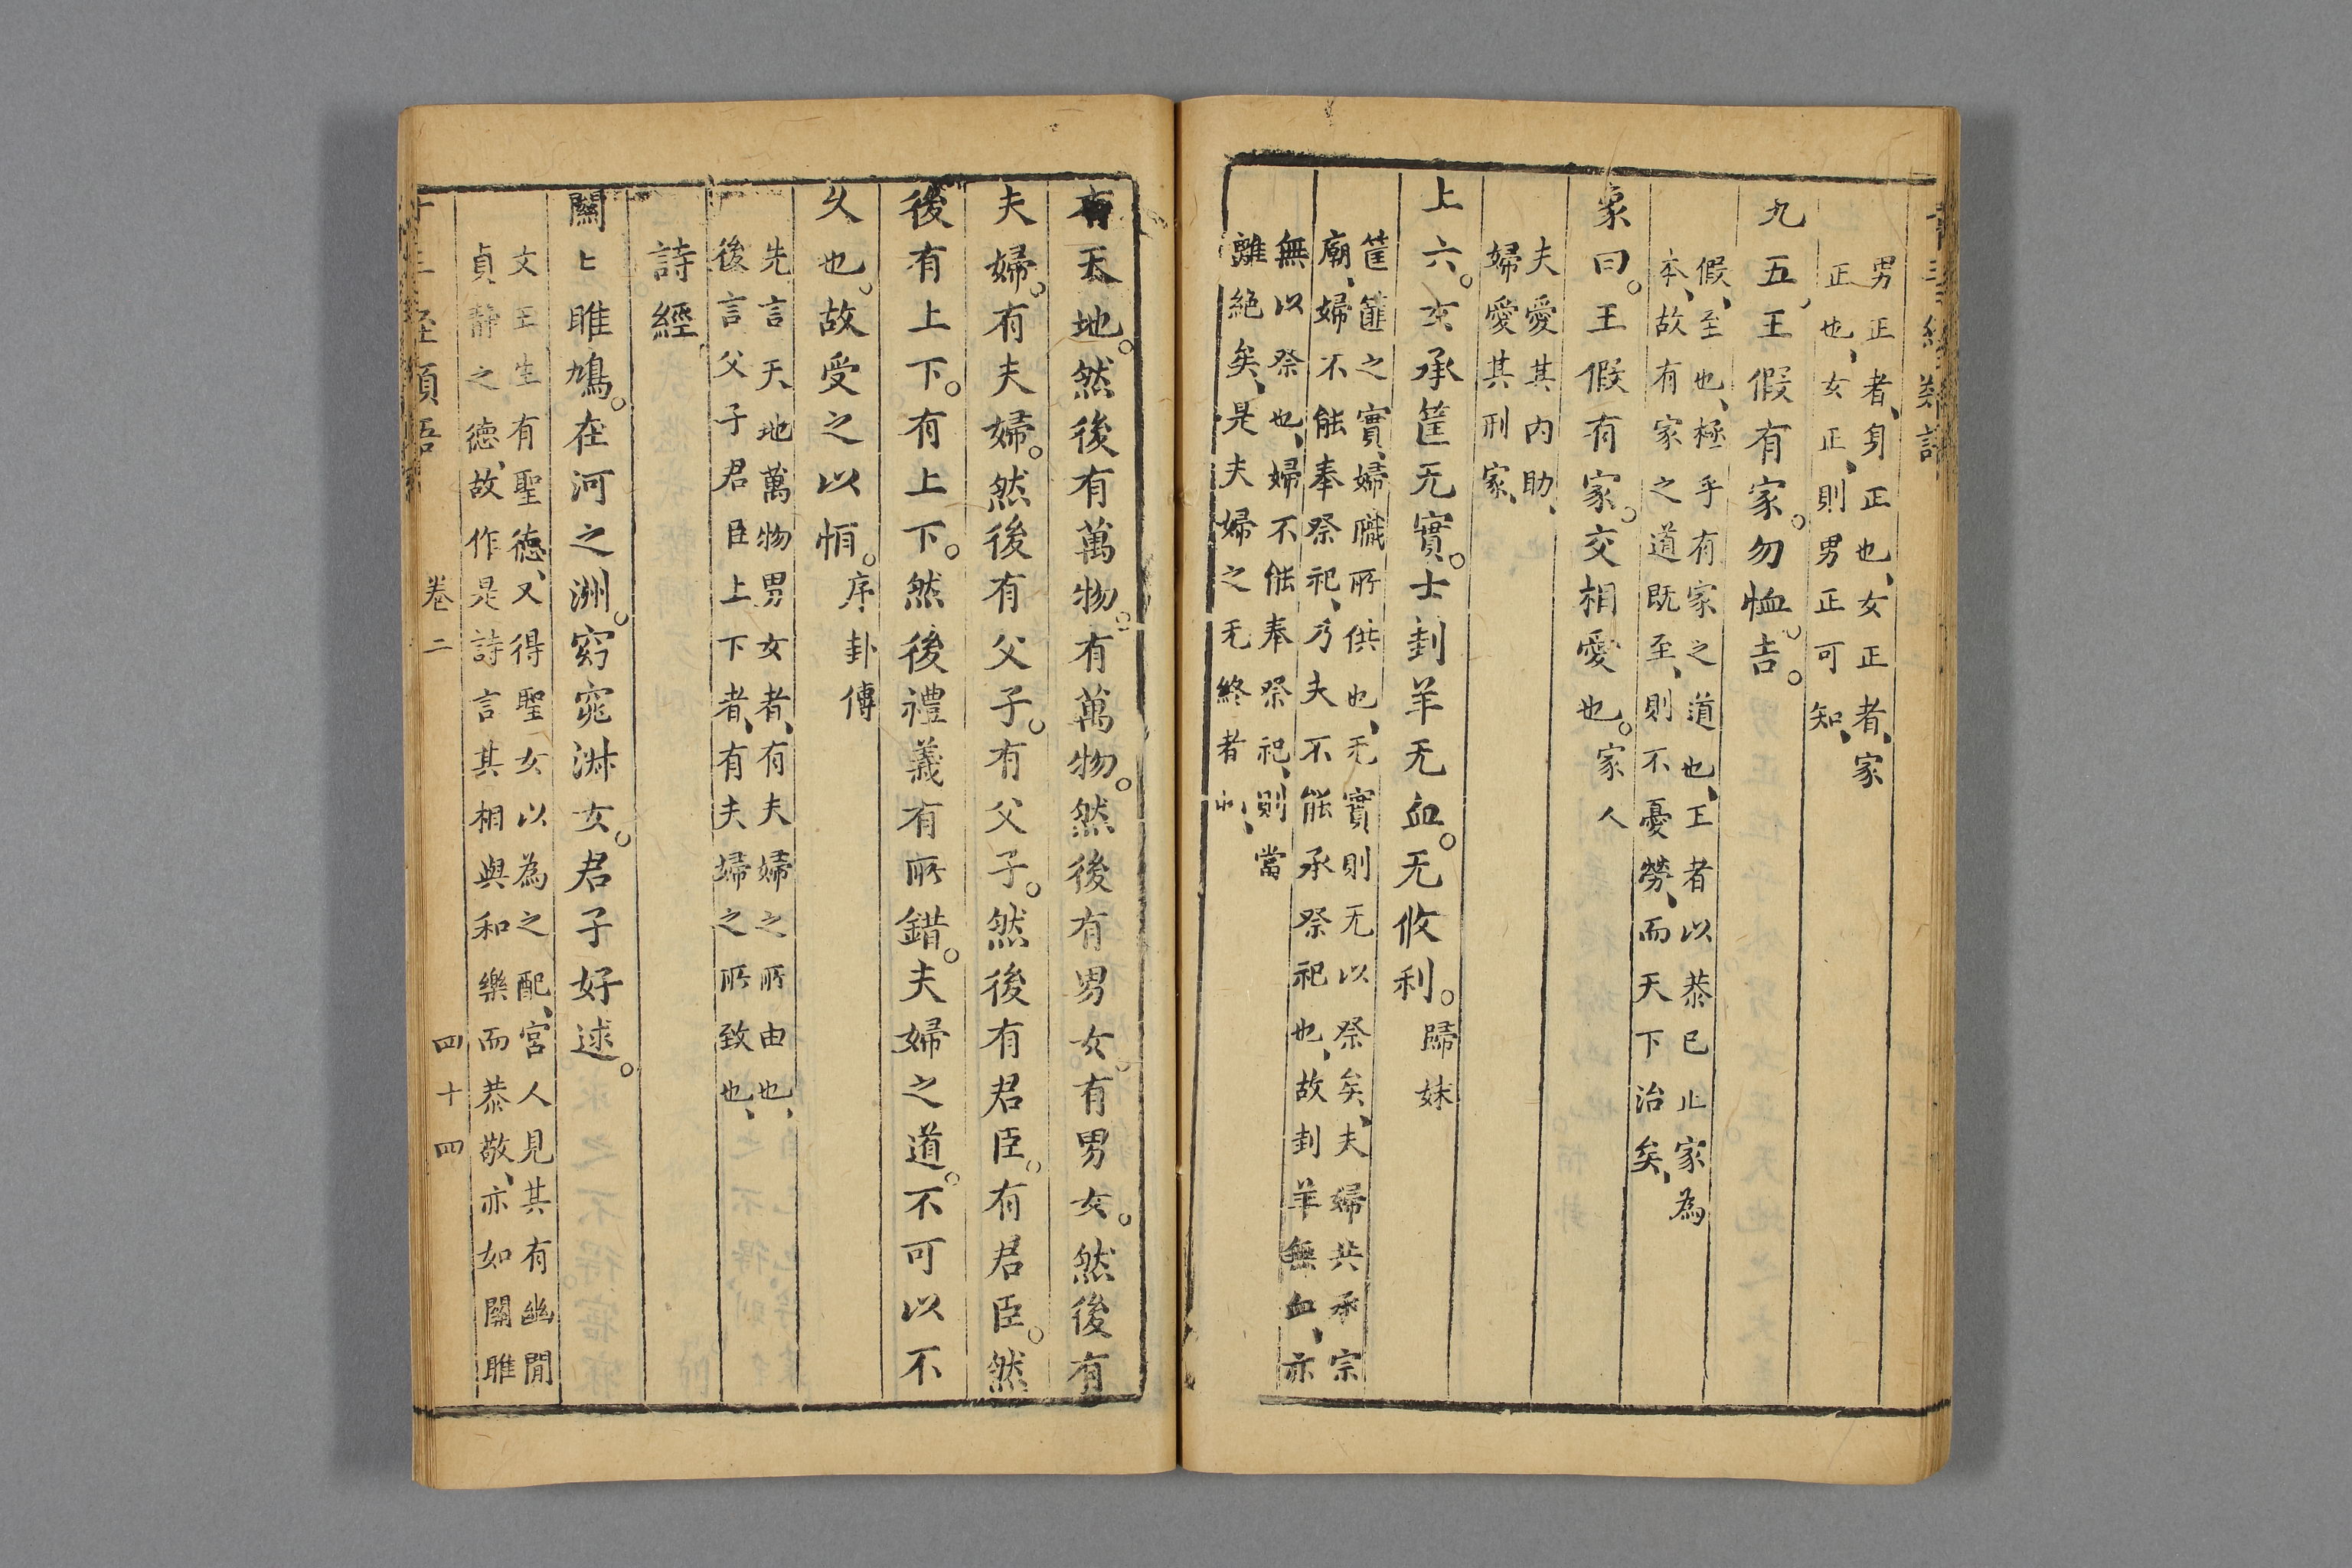 男正者、身正也、女正者、家
正也、女正、則男正可知、
九五、王假有家。勿恤。吉。
假、至也、極乎有家之道也、王者以恭已止家為
本、故有家之道既至、則不憂勞、而天下治矣、
象曰。王假有家。交相愛也。家人
夫愛其內助、
婦愛其刑家、
上六。女承筐无實。士刲羊无血。无攸利。歸妹
筐篚之實、婦職所供也、无實則无以祭矣、夫婦共承宗
廟、婦不能奉祭祀、乃夫不能承祭祀也、故刲羊無血、亦
無以祭也、婦不能奉祭祀、則當
離絶矣、是夫婦之无終者
有天地。然後有萬物。有萬物。然後有男女。有男女。然後有
夫婦。有夫婦。然後有父子。有父子。然後有君臣。有君臣。然
後有上下。有上下。然後禮義有所錯。夫婦之道。不可以不
久也。故受之以恒。序卦傳
先言天地萬物男女者、有夫婦之所由也、
後言父子君臣上下者、有夫婦之所致也、
詩經、
關〻雎鳩。在河之洲。窈窕淑女。君子好逑。
文王生有聖德、又得聖女以為之配、宮人見其有幽閒
貞靜之德、故作是詩言其相與和樂而恭敬、亦如關雎
卷二 四十四